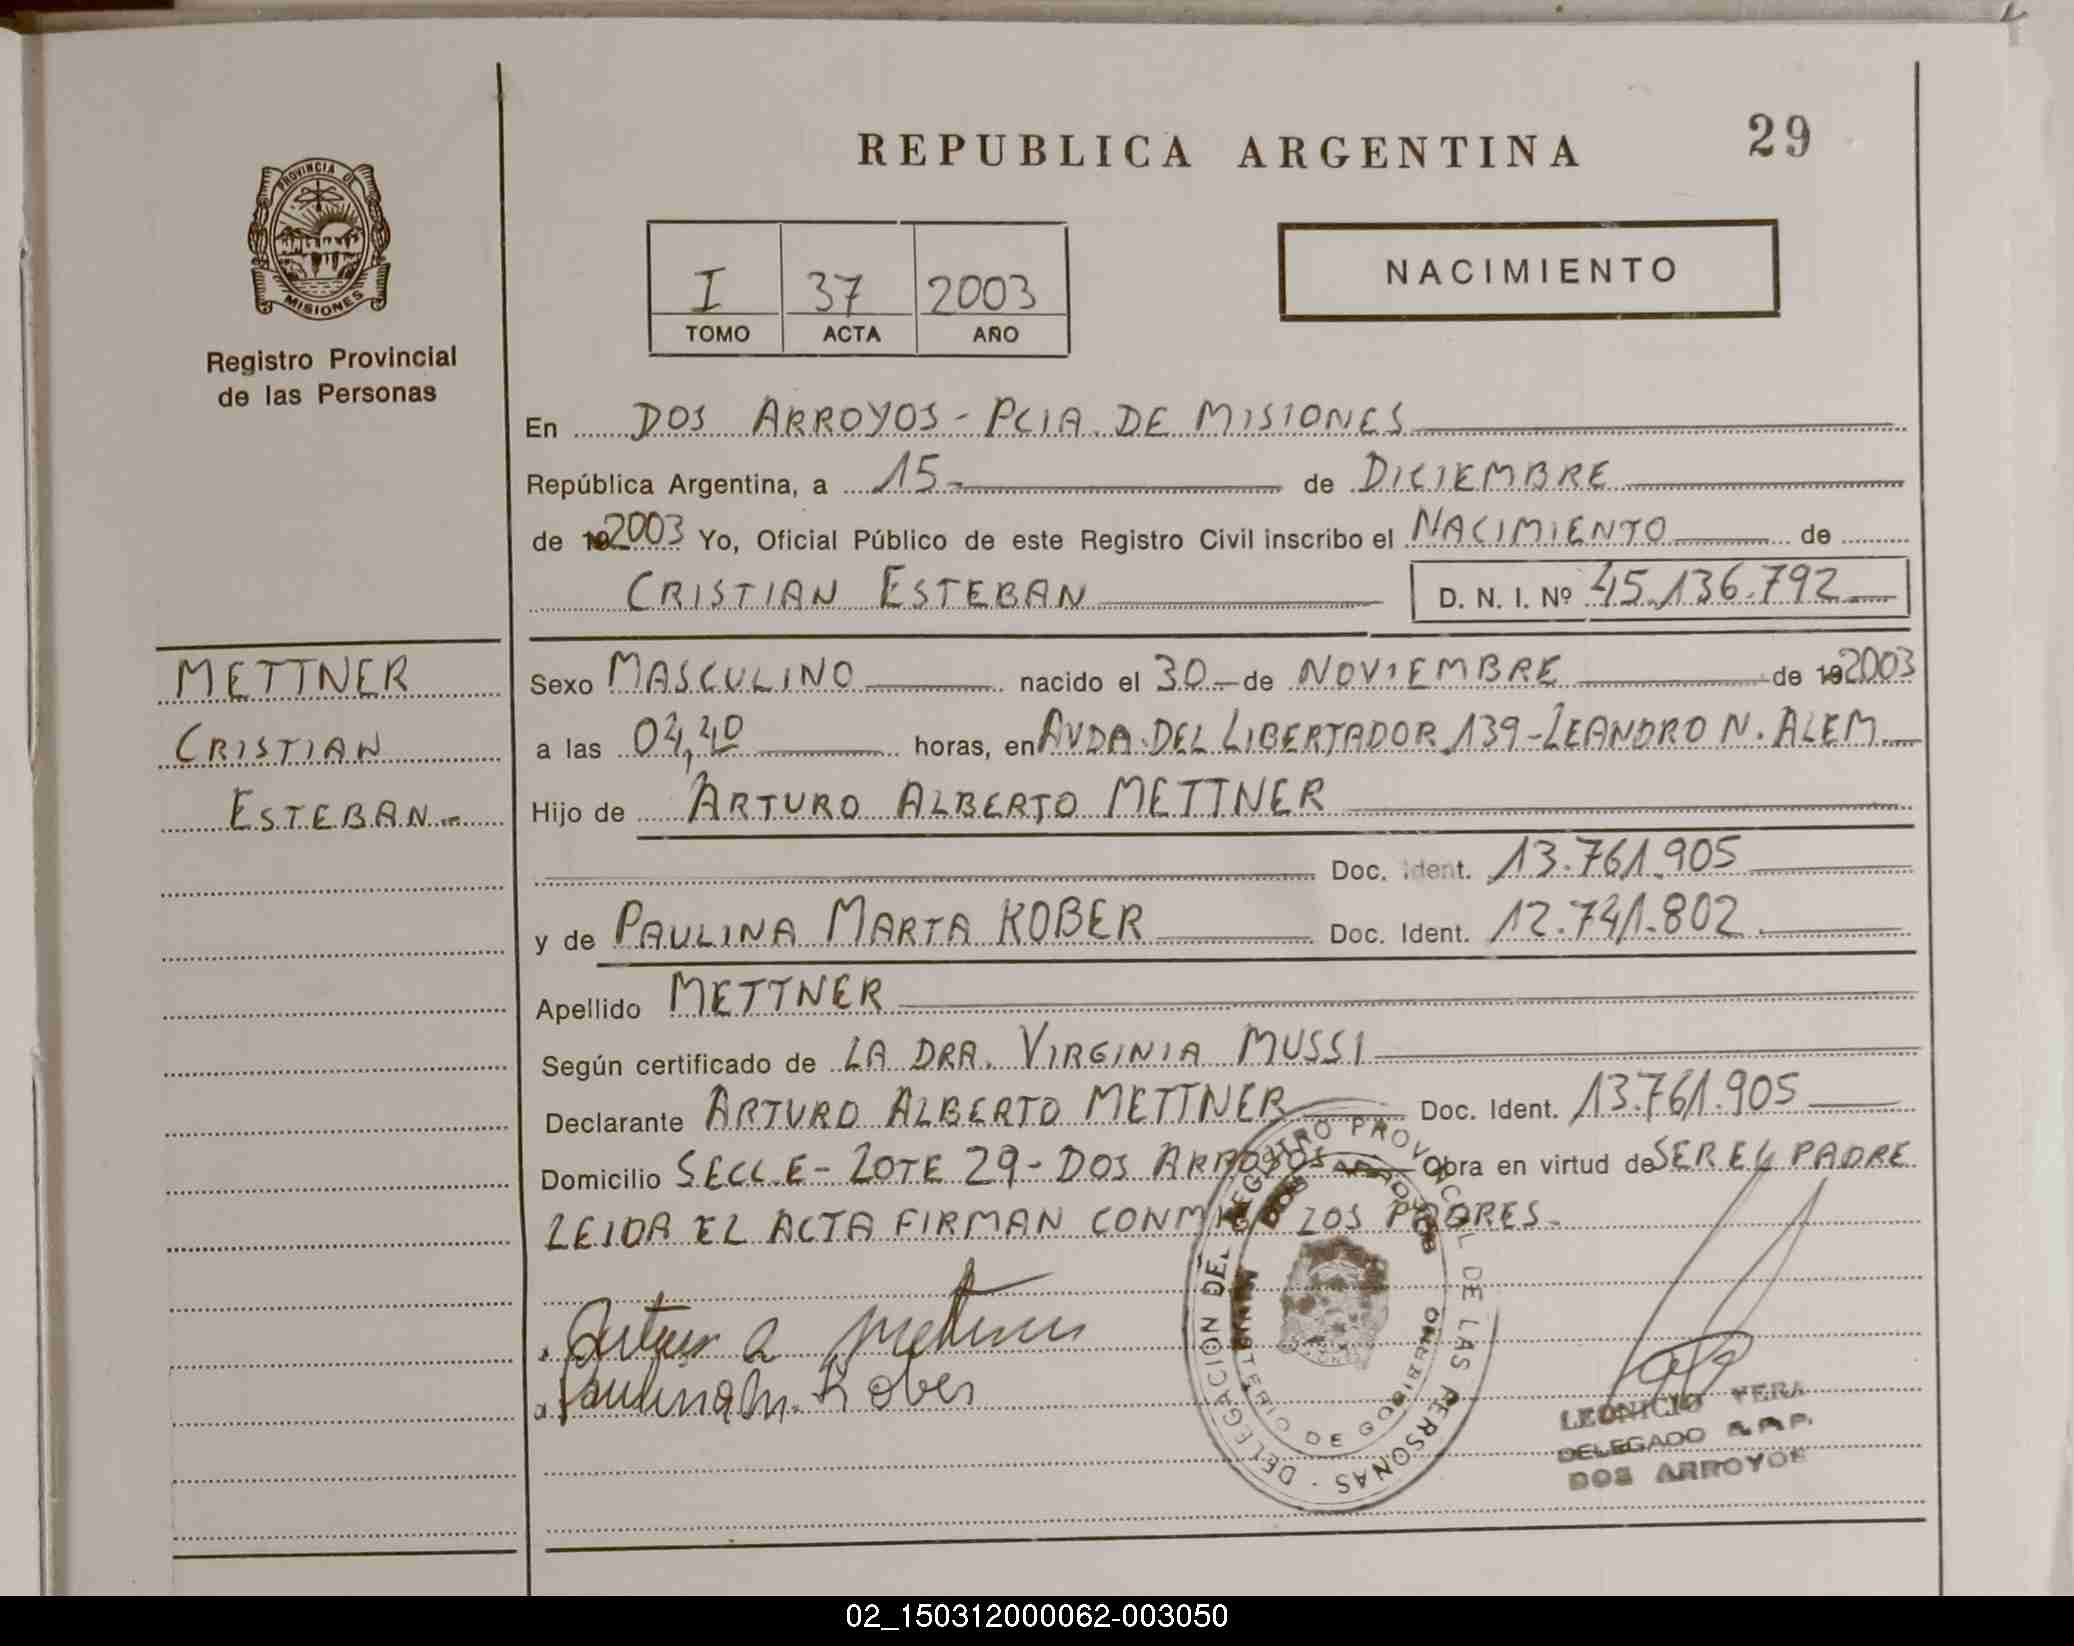 REPUBLICA ARGENTINA
29
PROVINCIA DE
MISIONES
Registro Provincial
de las Personas
I 37 2003
TOMO ACTA AÑO
NACIMIENTO
En DOS ARROYOS - PCIA. DE MISIONES
República Argentina, a 15- de DICIEMBRE
de 192003 Yo, Oficial Público de este Registro Civil inscribo el NACIMIENTO de
CRISTIAN ESTEBAN D. N. I. Nº 45.136.792
METTNER
CRISTIAN
ESTEBAN.-
Sexo MASCULINO nacido el 30 de NOVIEMBRE de 192003
a las 04,40 horas, en AVDA. DEL LIBERTADOR 139-LEANDRO N. ALEM
Hijo de ARTURO ALBERTO METTNER
Doc. Ident. 13.761.905
y de PAULINA MARTA KOBER Doc. Ident. 12.741.802
Apellido METTNER
Según certificado de LA DRA. VIRGINIA MUSSI
Declarante ARTURO ALBERTO METTNER Doc. Ident. 13.761.905
Domicilio SECC.E- LOTE 29- DOS ARROYOS Obra en virtud de SER EL PADRE
LEIDA EL ACTA FIRMAN CONMIGO LOS PADRES.-
Arturo A Mettner
Paulina M. Kober
DELEGACION DEL REGISTRO PROVINCIAL DE LAS PERSONAS -
DOS ARROYOS
MINISTERIO DE GOBIERNO
LEONICIO VERA
DELEGADO R.P.P.
DOS ARROYOS
02_150312000062-003050